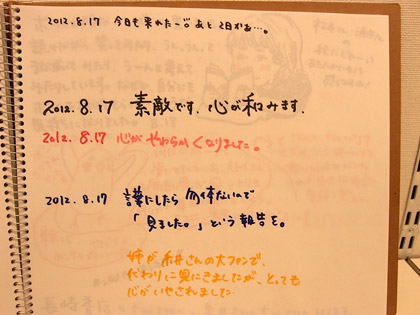 2012.8.17 今日も来れた〜♡。あと2日かぁ…。
2012.8.17 素敵です、心が和みます.
2012.8.17 心がやわらかくなりました。
2012.8.17 言葉にしたら勿体ないので
「見ました。」という報告を。
姉が糸井さんの大ファンで、
代わりに見にきましたが、とっても
心がいやされました